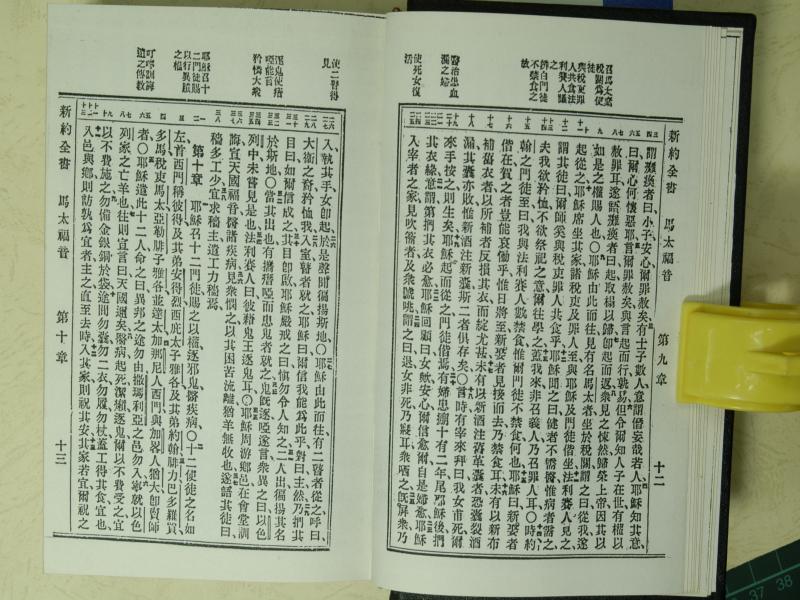 新約全書 馬太福音 第九章 十二
召馬太焉
稅關爲使
徒
與稅吏罪
人共食法
利賽人議
之
辨白門徒
不禁食之
故
醫治患血
漏之婦
使死女復
活
謂癱瘓者曰小子安心爾罪赦矣有士子數人意謂僭妄哉若人耶穌知其意
曰爾心何懷惡耶言爾罪赦矣與言起而行孰易但令爾知人子在世有權以
赦罪耳遂語癱瘓者曰起取榻以歸卽起而返衆見之悚然歸榮上帝因其以
如是之權賜人也〇耶穌由此而往見有名馬太者坐於稅關謂之曰從我遂
起從之耶穌席坐其家諸稅吏及罪人至與耶穌及門徒偕坐法利賽人見之
謂其徒曰爾師奚與稅吏罪人共食乎耶穌聞之曰健者不需醫惟病者需之
夫我欲矜恤不欲祭祀之意爾往學之蓋我來非召義人乃召罪人耳〇時約
翰之門徒至曰我與法利賽人數禁食惟爾門徒不禁食何也耶穌曰新娶者
偕在賀之者豈能哀慟乎惟日將至新娶者見接而去乃禁食耳未有以新布
補舊衣者以所補者反損其衣而綻尤甚未有以新酒注舊革囊者恐囊裂酒
漏其囊亦敗惟新酒注新囊斯二者俱存矣〇言時有宰來拜曰我女甫死爾
來手按之則生矣耶穌起而從之門徒偕焉有婦患崩十有二年尾耶穌後捫
其衣緣意謂第捫其衣必愈耶穌回顧曰女歟安心爾信愈爾自是婦愈耶穌
入宰者之家見吹簫者及衆號咷謂之曰退女非死乃寢耳衆哂之旣屏衆乃
使二瞽得
見
逐鬼使瘖
啞能言
矜憐大衆
耶穌召十
二門徒賜
以行異蹟
之權
叮嚀訓誨
遣之傳教
入執其手女卽起於是聲聞徧揚斯地〇耶穌由此而往有二瞽者從之呼曰
大衛之裔矜恤我入室瞽者就之耶穌曰爾信我能爲此乎對曰主然乃捫其
目曰如爾信成之其目卽啟耶穌嚴戒之曰愼勿令人知之二人出徧揚其名
於斯地〇當其出也有攜瘖啞而患鬼者就之鬼旣逐啞遂言衆異之曰以色
列中未嘗見是也法利賽人曰彼藉鬼王逐鬼耳〇耶穌周游鄉邑在會堂訓
誨宣天國福音醫諸疾病見衆憫之以其困苦流離猶羊無牧也遂語其徒曰
穡多工少宜求穡主遣工力穡焉
第十章 耶穌召十二門徒賜之以權逐邪鬼醫疾病〇十二使徒之名如
左首西門稱彼得及其弟安得烈西庇太子雅各及其弟約翰腓力巴多羅買
多馬稅吏馬太亞勒腓子雅各並達太加那尼人西門與加畧人猶大卽賣師
者〇耶穌遣此十二人命之曰異邦之途勿由撒瑪利亞之邑勿入寧就以色
列家之亡羊也往則宣言曰天國邇矣醫病起死潔癩逐鬼爾以不費受之宜
以不費施之勿備金銀銅於袋途間勿囊勿二衣勿履勿杖蓋工得其食宜也
入邑與鄉則訪孰爲宜者主之直至去時入其家則祝其安其家若宜爾祝之
新約全書 馬太福音 第十章 十三
37 38